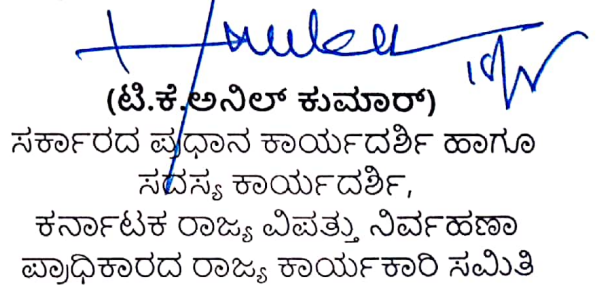 (ಟಿ.ಕೆ.ಅನಿಲ್ ಕುಮಾರ್)
ಸರ್ಕಾರದ ಪ್ರಧಾನ ಕಾರ್ಯದರ್ಶಿ ಹಾಗೂ
ಸದಸ್ಯ ಕಾರ್ಯದರ್ಶಿ,
ಕರ್ನಾಟಕ ರಾಜ್ಯ ವಿಪತ್ತು ನಿರ್ವಹಣಾ
ಪ್ರಾಧಿಕಾರದ ರಾಜ್ಯ ಕಾರ್ಯಕಾರಿ ಸಮಿತಿ